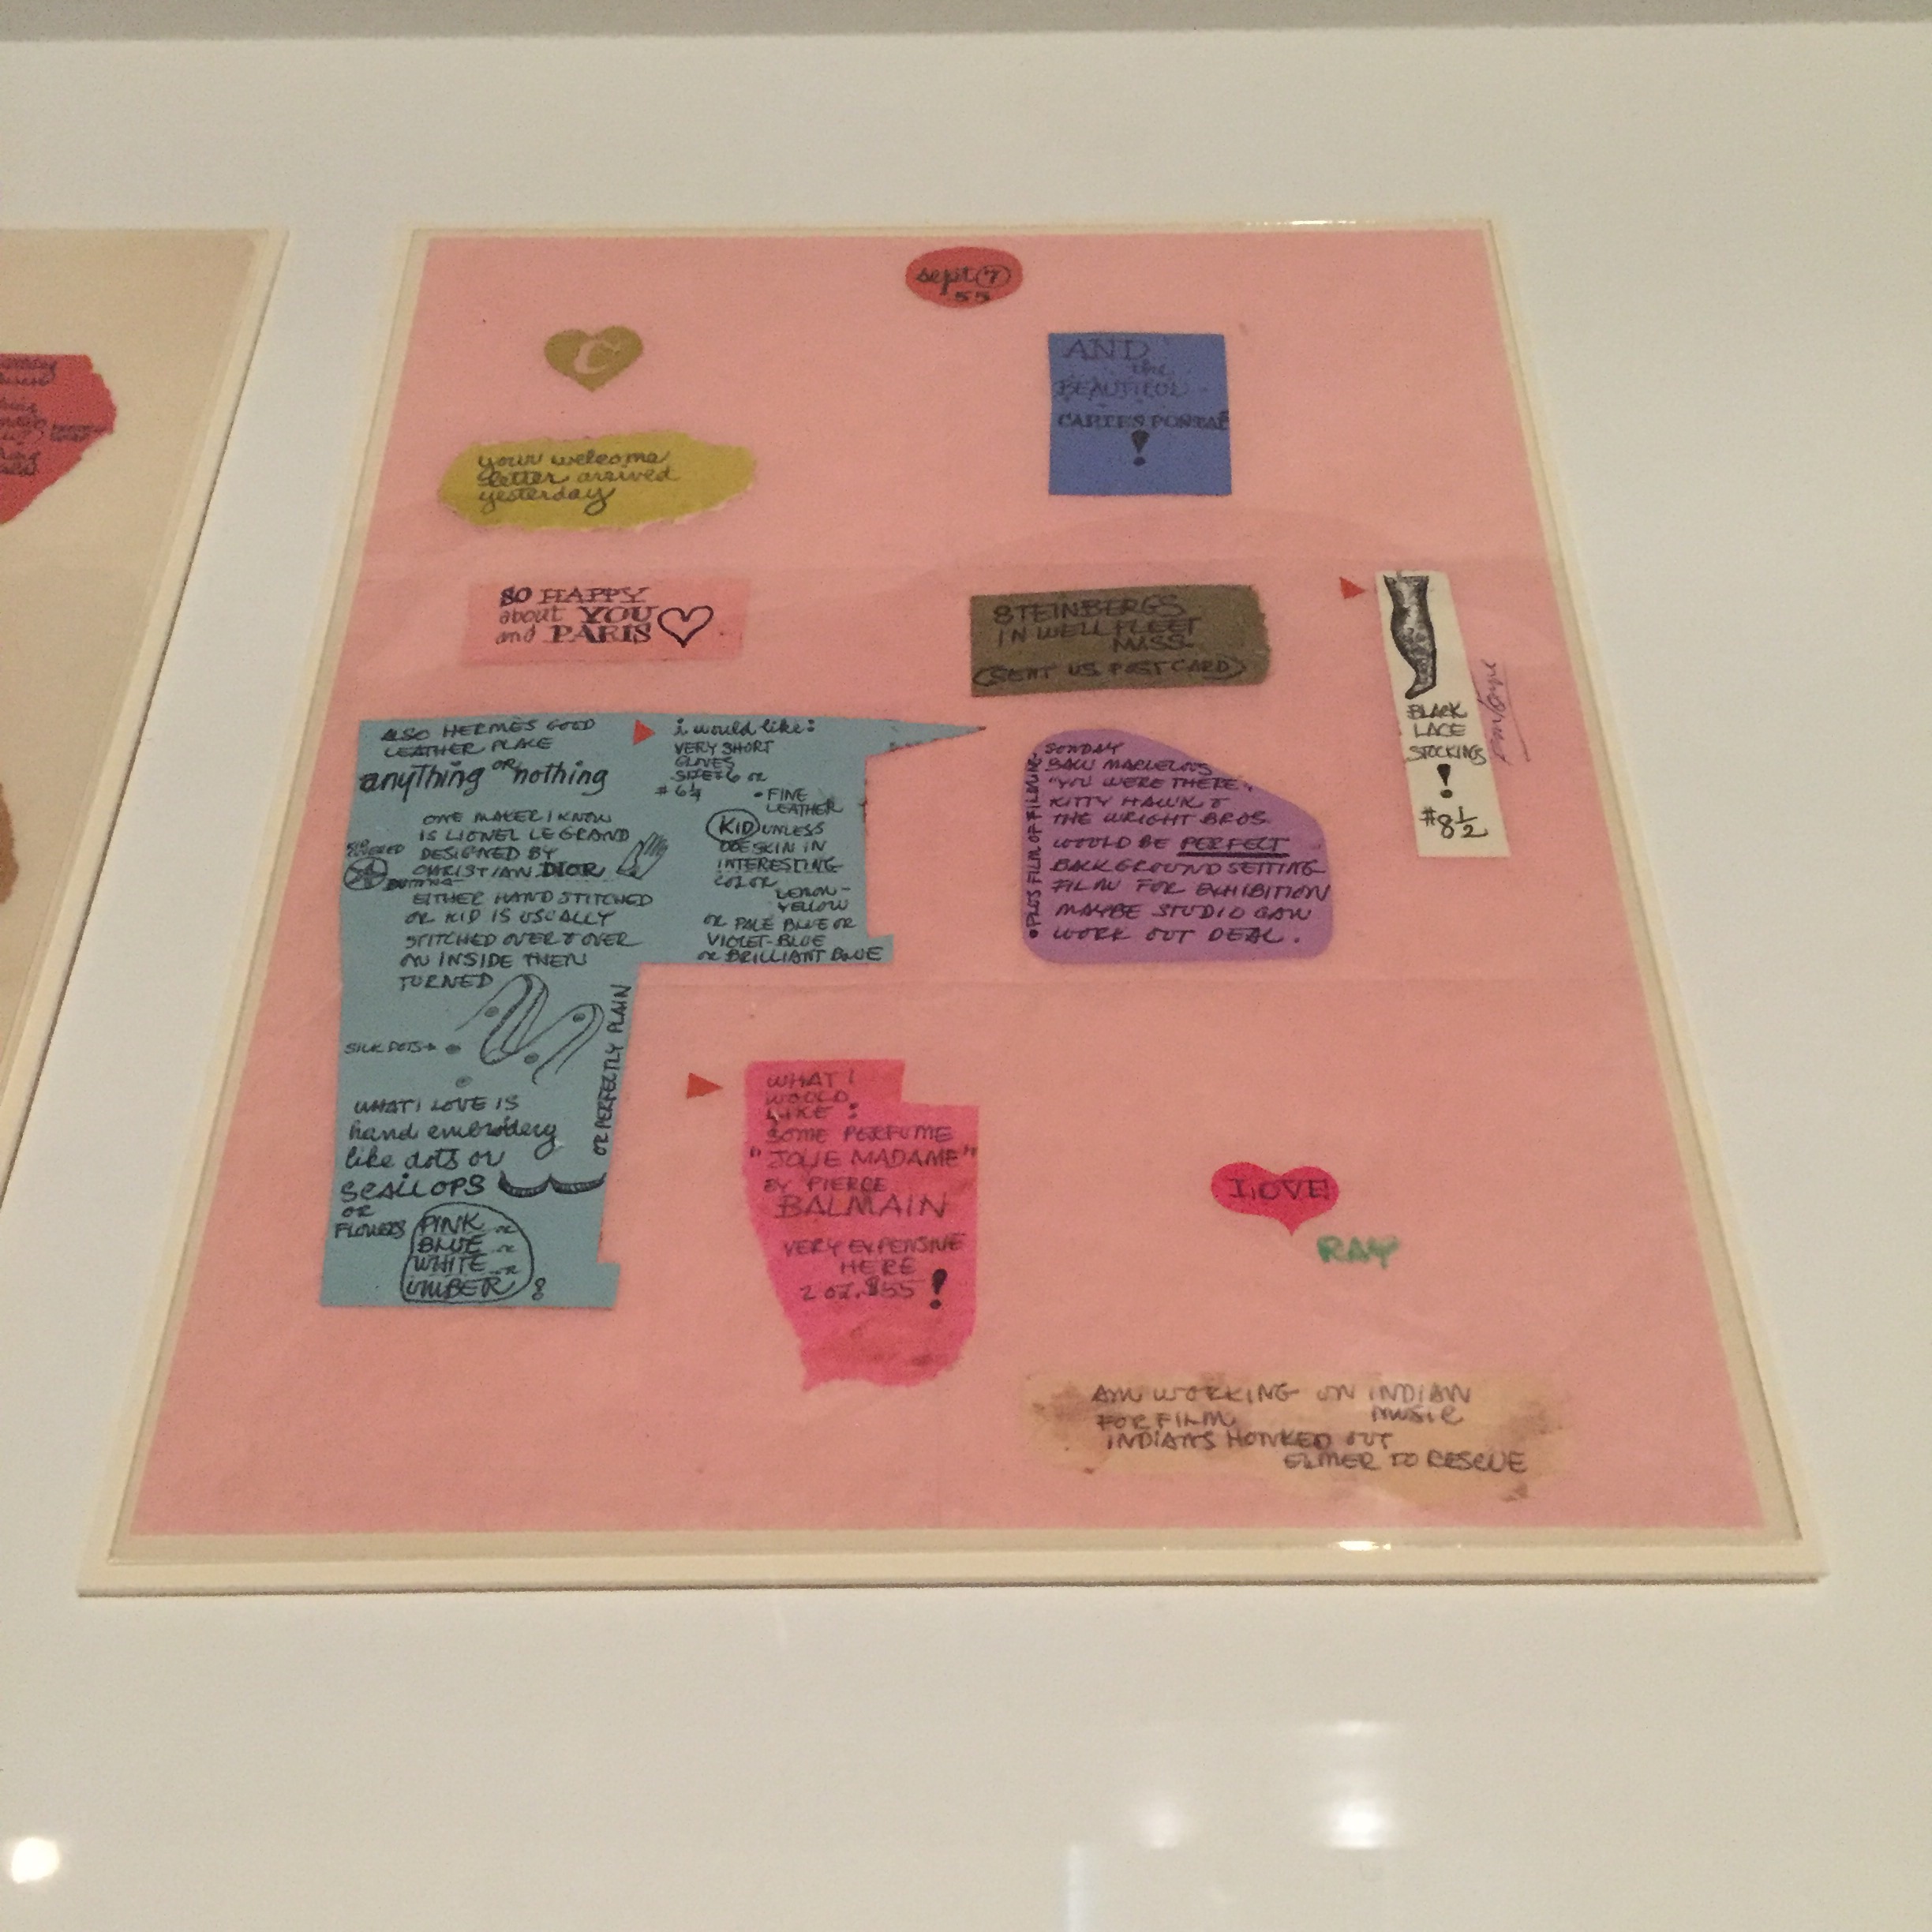 sept 7
55
C
AND
the
BEAUTIFUL
CARTES POSTAE
!
your welcome
letter arrived
yesterday
SO HAPPY
about YOU
and PARIS
STEINBERGS
IN WELLFLEET
MASS.
(SENT US POSTCARD)
BLACK
LACE
STOCKINGS
!
#8½
ALSO HERMÈS GOOD
LEATHER PLACE
anything OR nothing
ONE MAKER I KNOW
IS LIONEL LE GRAND
DESIGNED BY
CHRISTIAN DIOR
KID
COVERED
BUTTONS
EITHER HAND STITCHED
OR KID IS USUALLY
STITCHED OVER & OVER
ON INSIDE THEN
TURNED
SILK DOTS
OR PERFECTLY PLAIN
WHAT I LOVE IS
hand embroidery
like dots or
SCALLOPS
OR
FLOWERS
PINK or
BLUE or
WHITE or
UMBER
i would like:
VERY SHORT
GLOVES
SIZE #6 or
#6¼
• FINE
LEATHER
KID UNLESS
DOESKIN IN
INTERESTING
COLOR
LEMON-
YELLOW
OR PALE BLUE OR
VIOLET-BLUE
OR BRILLIANT BLUE
SUNDAY
SAW MARVELOUS
"YOU WERE THERE"
KITTY HAWK &
THE WRIGHT BROS.
WOULD BE PERFECT
BACKGROUND SETTING
FILM FOR EXHIBITION
MAYBE STUDIO CAN
WORK OUT DEAL.
• PLUS FILM OF FILMING
WHAT I
WOULD
LIKE:
SOME PERFUME
"JOLIE MADAME"
BY PIERRE
BALMAIN
VERY EXPENSIVE
HERE
2 OZ. $55!
LOVE
RAY
AM WORKING ON INDIAN
FOR FILM MUSIC
INDIANS HONKED OUT
ELMER TO RESCUE